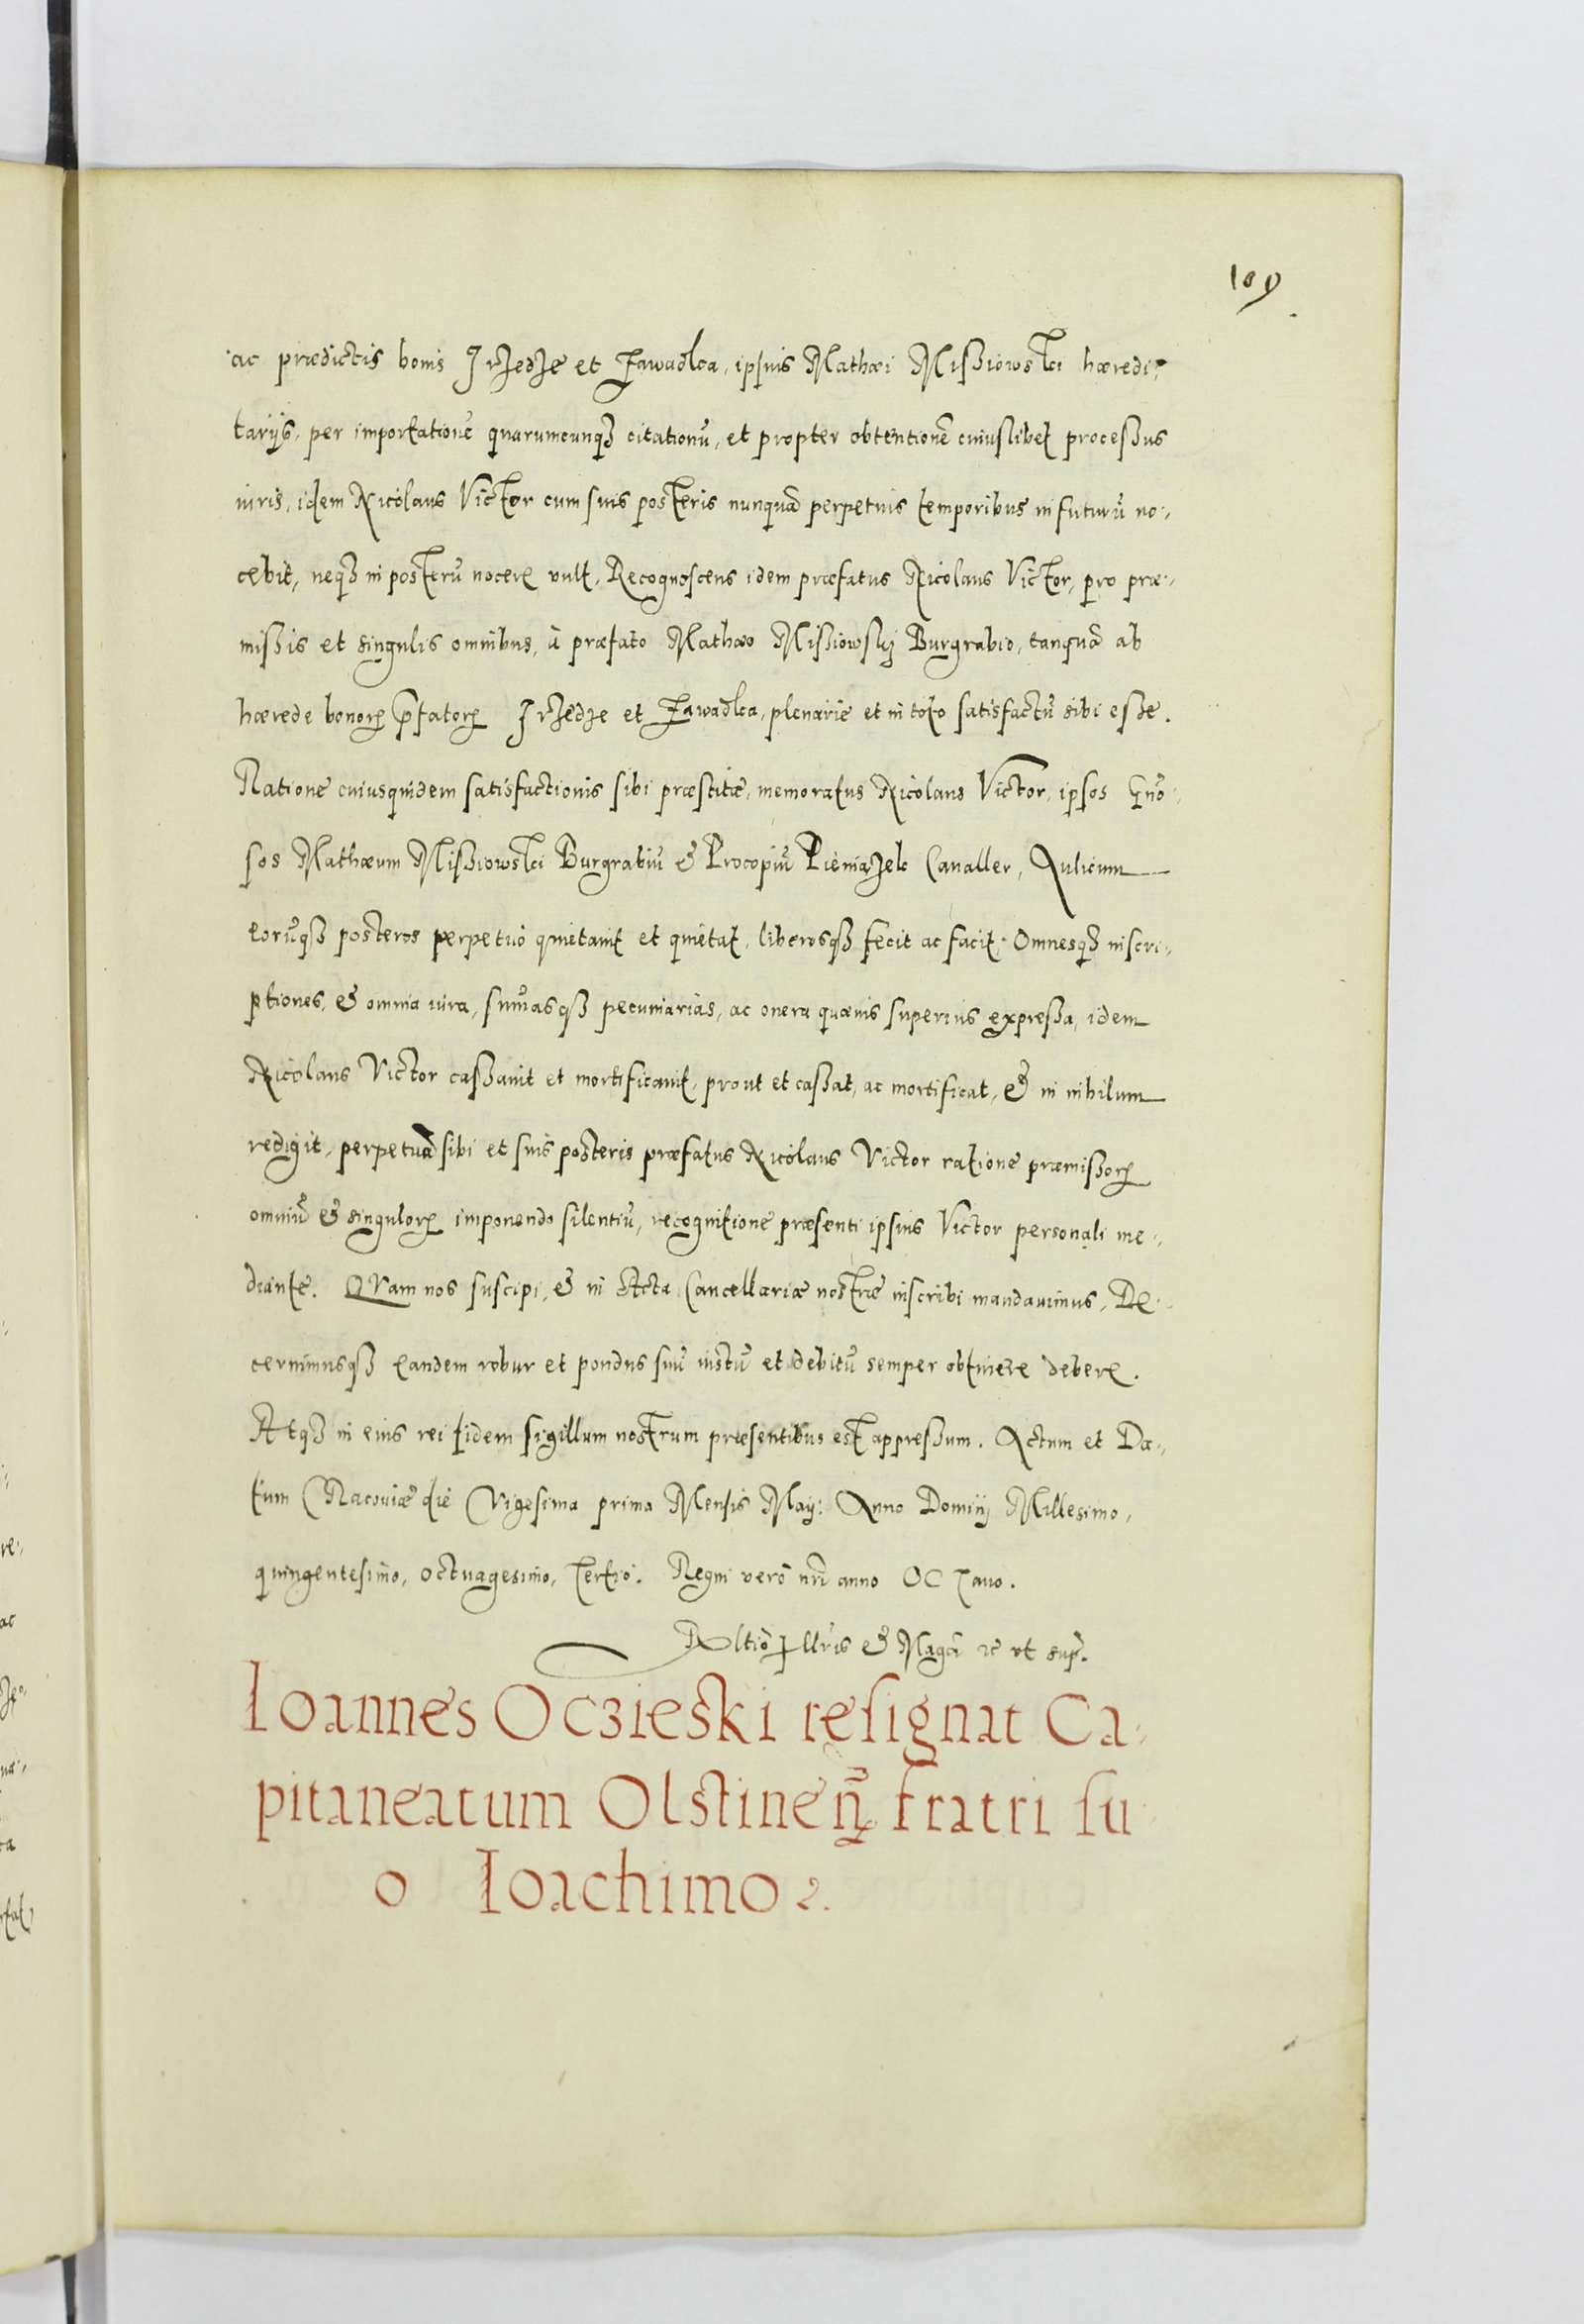 109
ac prædictis bonis Irzedze et Zawadka, ipsius Mathæi Missiowski hæredi-
tarijs, per importationē quarumcunq₃ citationū, et propter obtentionē cuiuslibet processus
iuris, idem Nicolaus Victor cum suis posteris nunquā perpetuis temporibus in futurū no-
cebit, neq₃ in posterū nocere vult, Recognoscens idem præfatus Nicolaus Victor, pro præ-
missis et singulis omnibus, à præfato Mathæo Missiowskj Burgrabio, tanquā ab
hærede bonoꝝ p̄fatoꝝ Irzedze et Zawadka, plenarie et in toto satisfactū sibi esse.
Ratione cuiusquidem satisfactionis sibi præstitæ, memoratus Nicolaus Victor, ipsos Gn̄o-
sos Mathæum Missiowski Burgrabiū & Procopiū Pieniązek Caualler, Aulicum
eorūq₃ posteros perpetuò quietauit et quietat, liberosq₃ fecit ac facit. Omnesq₃ inscri-
ptiones, & omnia iura, sum̄asq₃ pecuniarias, ac onera quæuis superius expressa, idem
Nicolaus Victor cassauit et mortificauit, prout et cassat, ac mortificat, & in nihilum
redigit, perpetuū sibi et suis posteris præfatus Nicolaus Victor ratione præmissoꝝ
omniū & singuloꝝ imponendo silentiū, recognitione præsenti ipsius Victor personali me-
diante. QVam nos suscipi, & in Acta Cancellariæ nostræ inscribi mandauimus, De-
cernimusq₃ eandem robur et pondus suū iustū et debitū semper obtinere debere.
Atq₃ in eius rei fidem sigillum nostrum præsentibus est appressum. Actum et Da-
tum Cracouiæ die Vigesima prima Mensis Maij: Anno Dominj Millesimo,
quingentesimo, octuagesimo, Tertio. Regni verò nr̄i anno OCTauo.
Rltiō Illris & Mag̃ci ꝛc vt sup̃.
Ioannes Oczieski resignat Ca-
pitaneatum Olstineñ fratri su
o Ioachimo